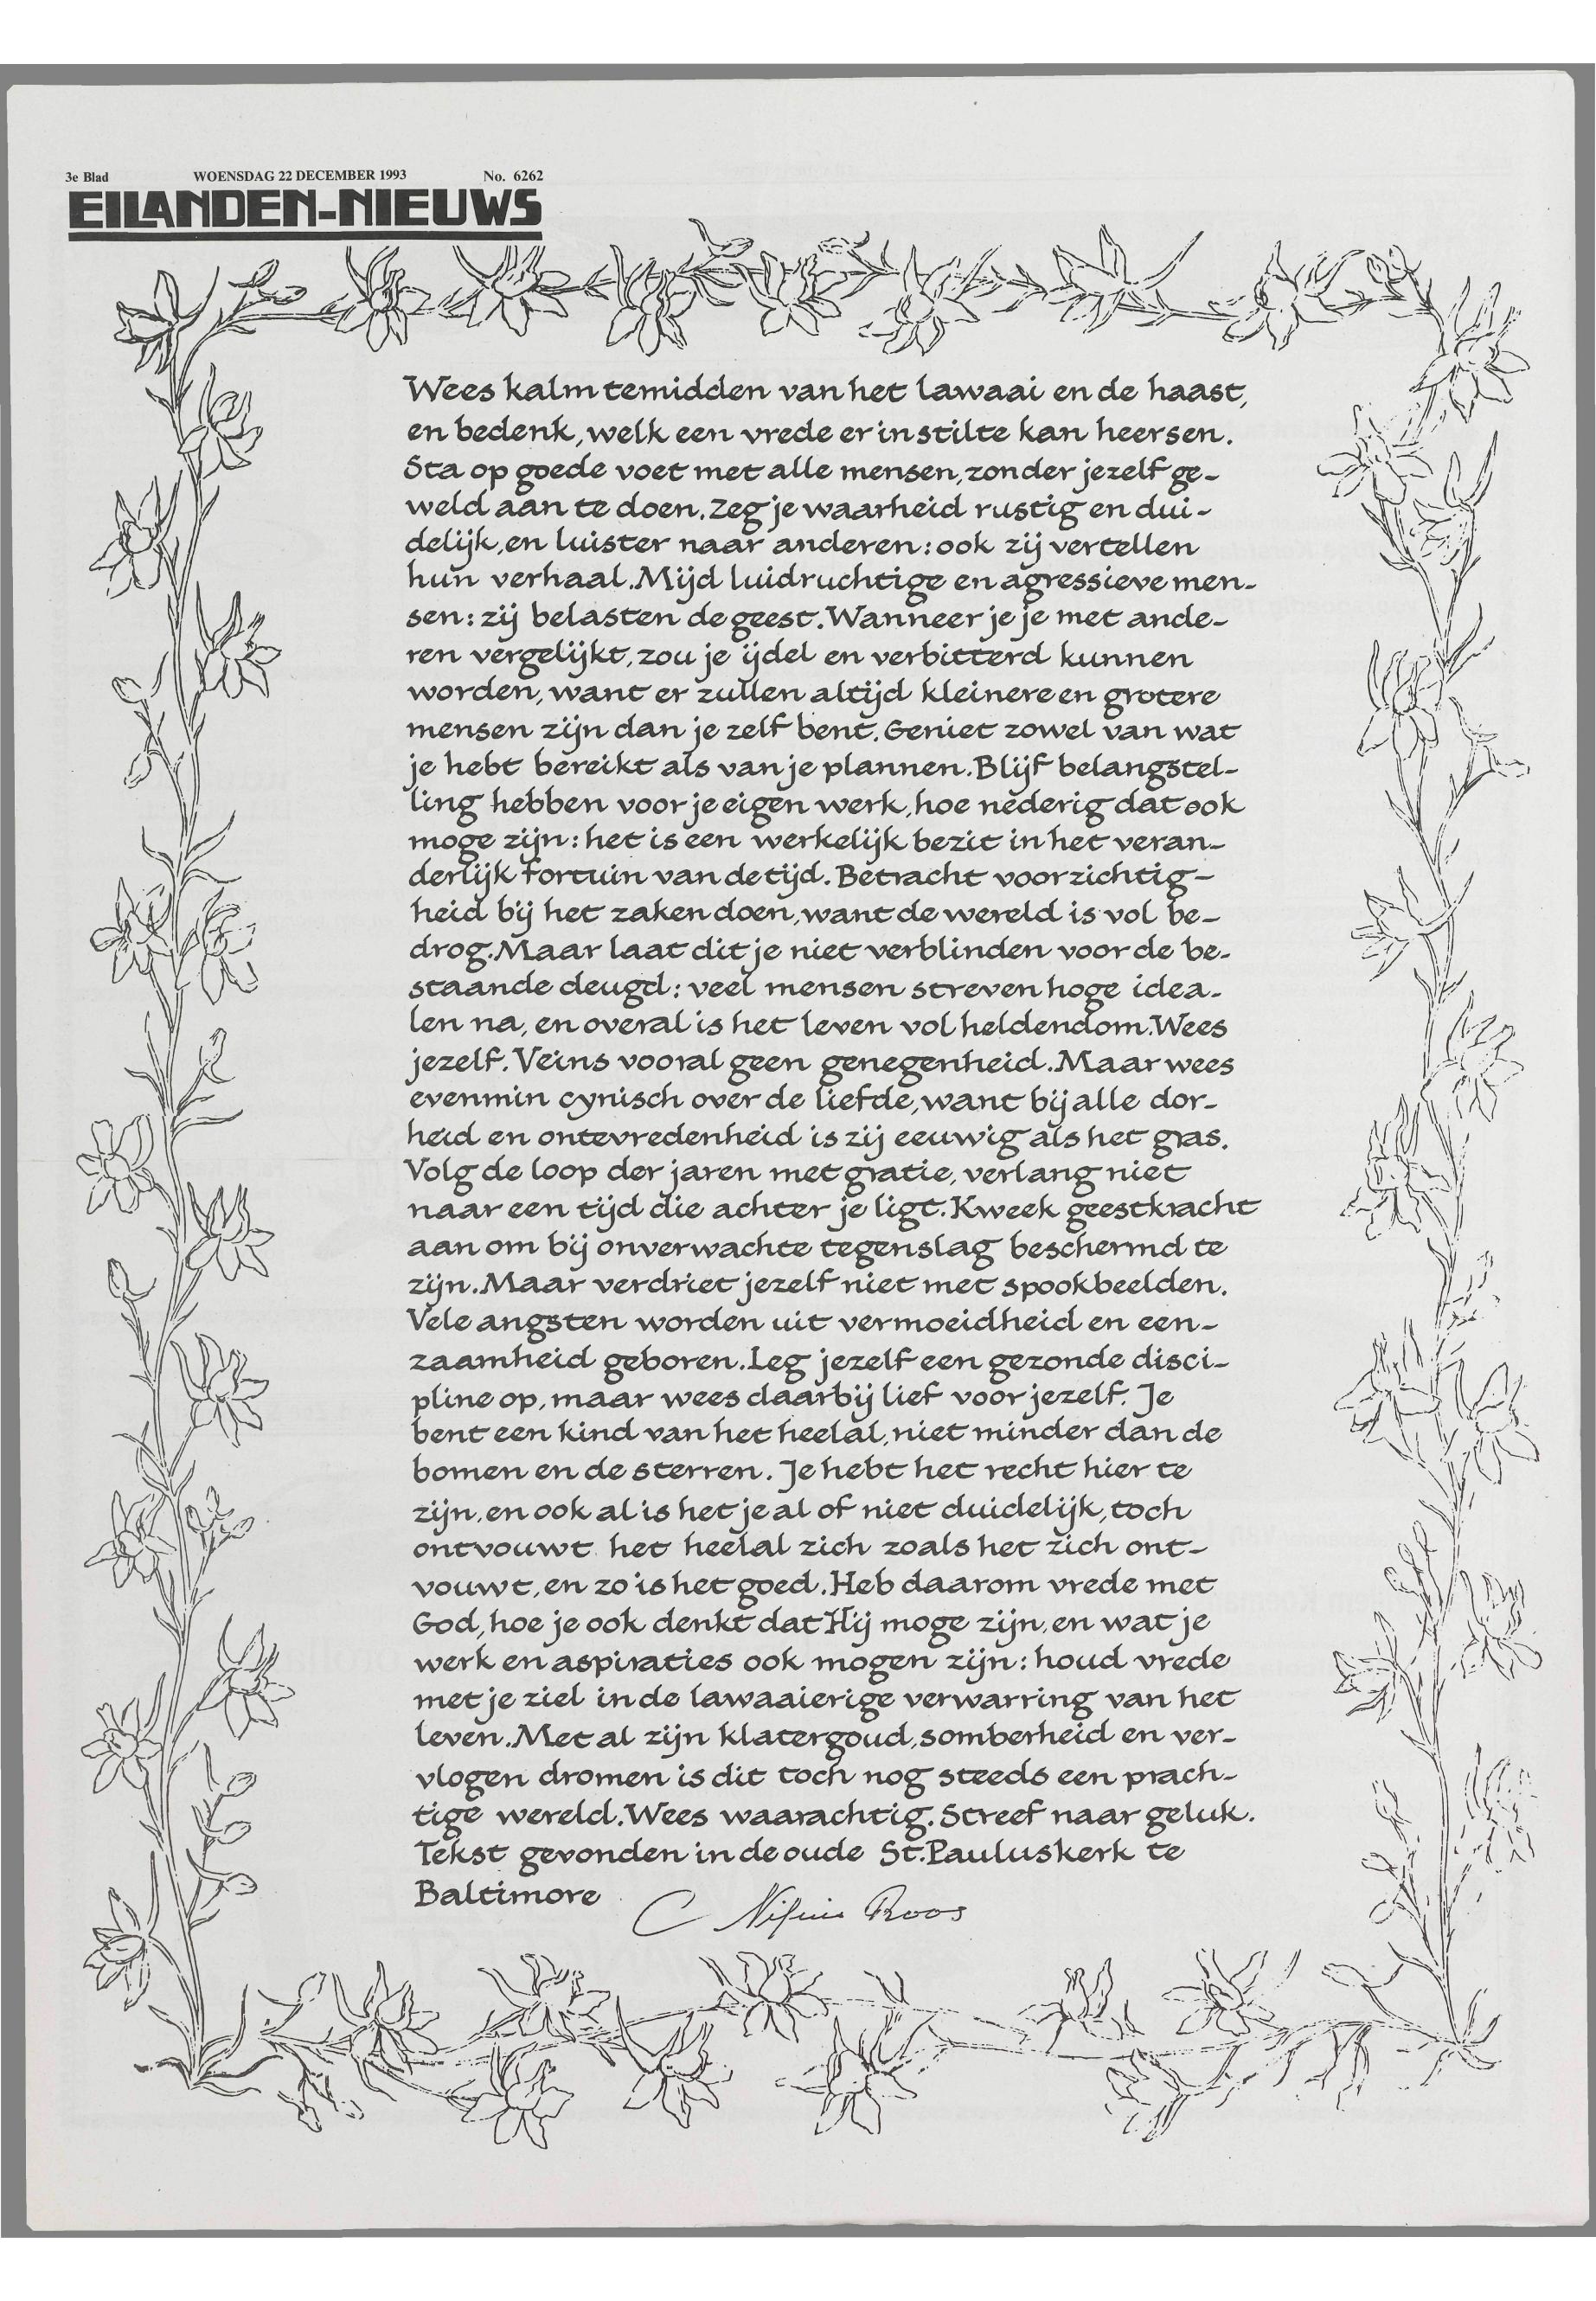 3e Blad WOENSDAG 22 DECEMBER 1993 No. 6262
EILANDEN-NIEUWS
Wees kalm temidden van het lawaai en de haast,
en bedenk, welk een vrede er in stilte kan heersen.
Sta op goede voet met alle mensen, zonder jezelf ge-
weld aan te doen. Zeg je waarheid rustig en dui-
delijk, en luister naar anderen: ook zij vertellen
hun verhaal. Mijd luidruchtige en agressieve men-
sen: zij belasten de geest. Wanneer je je met ande-
ren vergelijkt, zou je ijdel en verbitterd kunnen
worden, want er zullen altijd kleinere en grotere
mensen zijn dan je zelf bent. Geniet zowel van wat
je hebt bereikt als van je plannen. Blijf belangstel-
ling hebben voor je eigen werk, hoe nederig dat ook
moge zijn: het is een werkelijk bezit in het veran-
derlijk fortuin van de tijd. Betracht voorzichtig-
heid bij het zaken doen, want de wereld is vol be-
drog. Maar laat dit je niet verblinden voor de be-
staande deugd: veel mensen streven hoge idea-
len na, en overal is het leven vol heldendom. Wees
jezelf. Veins vooral geen genegenheid. Maar wees
evenmin cynisch over de liefde, want bij alle dor-
heid en ontevredenheid is zij eeuwig als het gras.
Volg de loop der jaren met gratie, verlang niet
naar een tijd die achter je ligt. Kweek geestkracht
aan om bij onverwachte tegenslag beschermd te
zijn. Maar verdriet jezelf niet met spookbeelden.
Vele angsten worden uit vermoeidheid en een-
zaamheid geboren. Leg jezelf een gezonde disci-
pline op, maar wees daarbij lief voor jezelf. Je
bent een kind van het heelal, niet minder dan de
bomen en de sterren. Je hebt het recht hier te
zijn, en ook al is het je al of niet duidelijk, toch
ontvouwt het heelal zich zoals het zich ont-
vouwt, en zo is het goed. Heb daarom vrede met
God, hoe je ook denkt dat Hij moge zijn, en wat je
werk en aspiraties ook mogen zijn: houd vrede
met je ziel in de lawaaierige verwarring van het
leven. Met al zijn klatergoud, somberheid en ver-
vlogen dromen is dit toch nog steeds een prach-
tige wereld. Wees waarachtig. Streef naar geluk.
Tekst gevonden in de oude St. Pauluskerk te
Baltimore C Roos